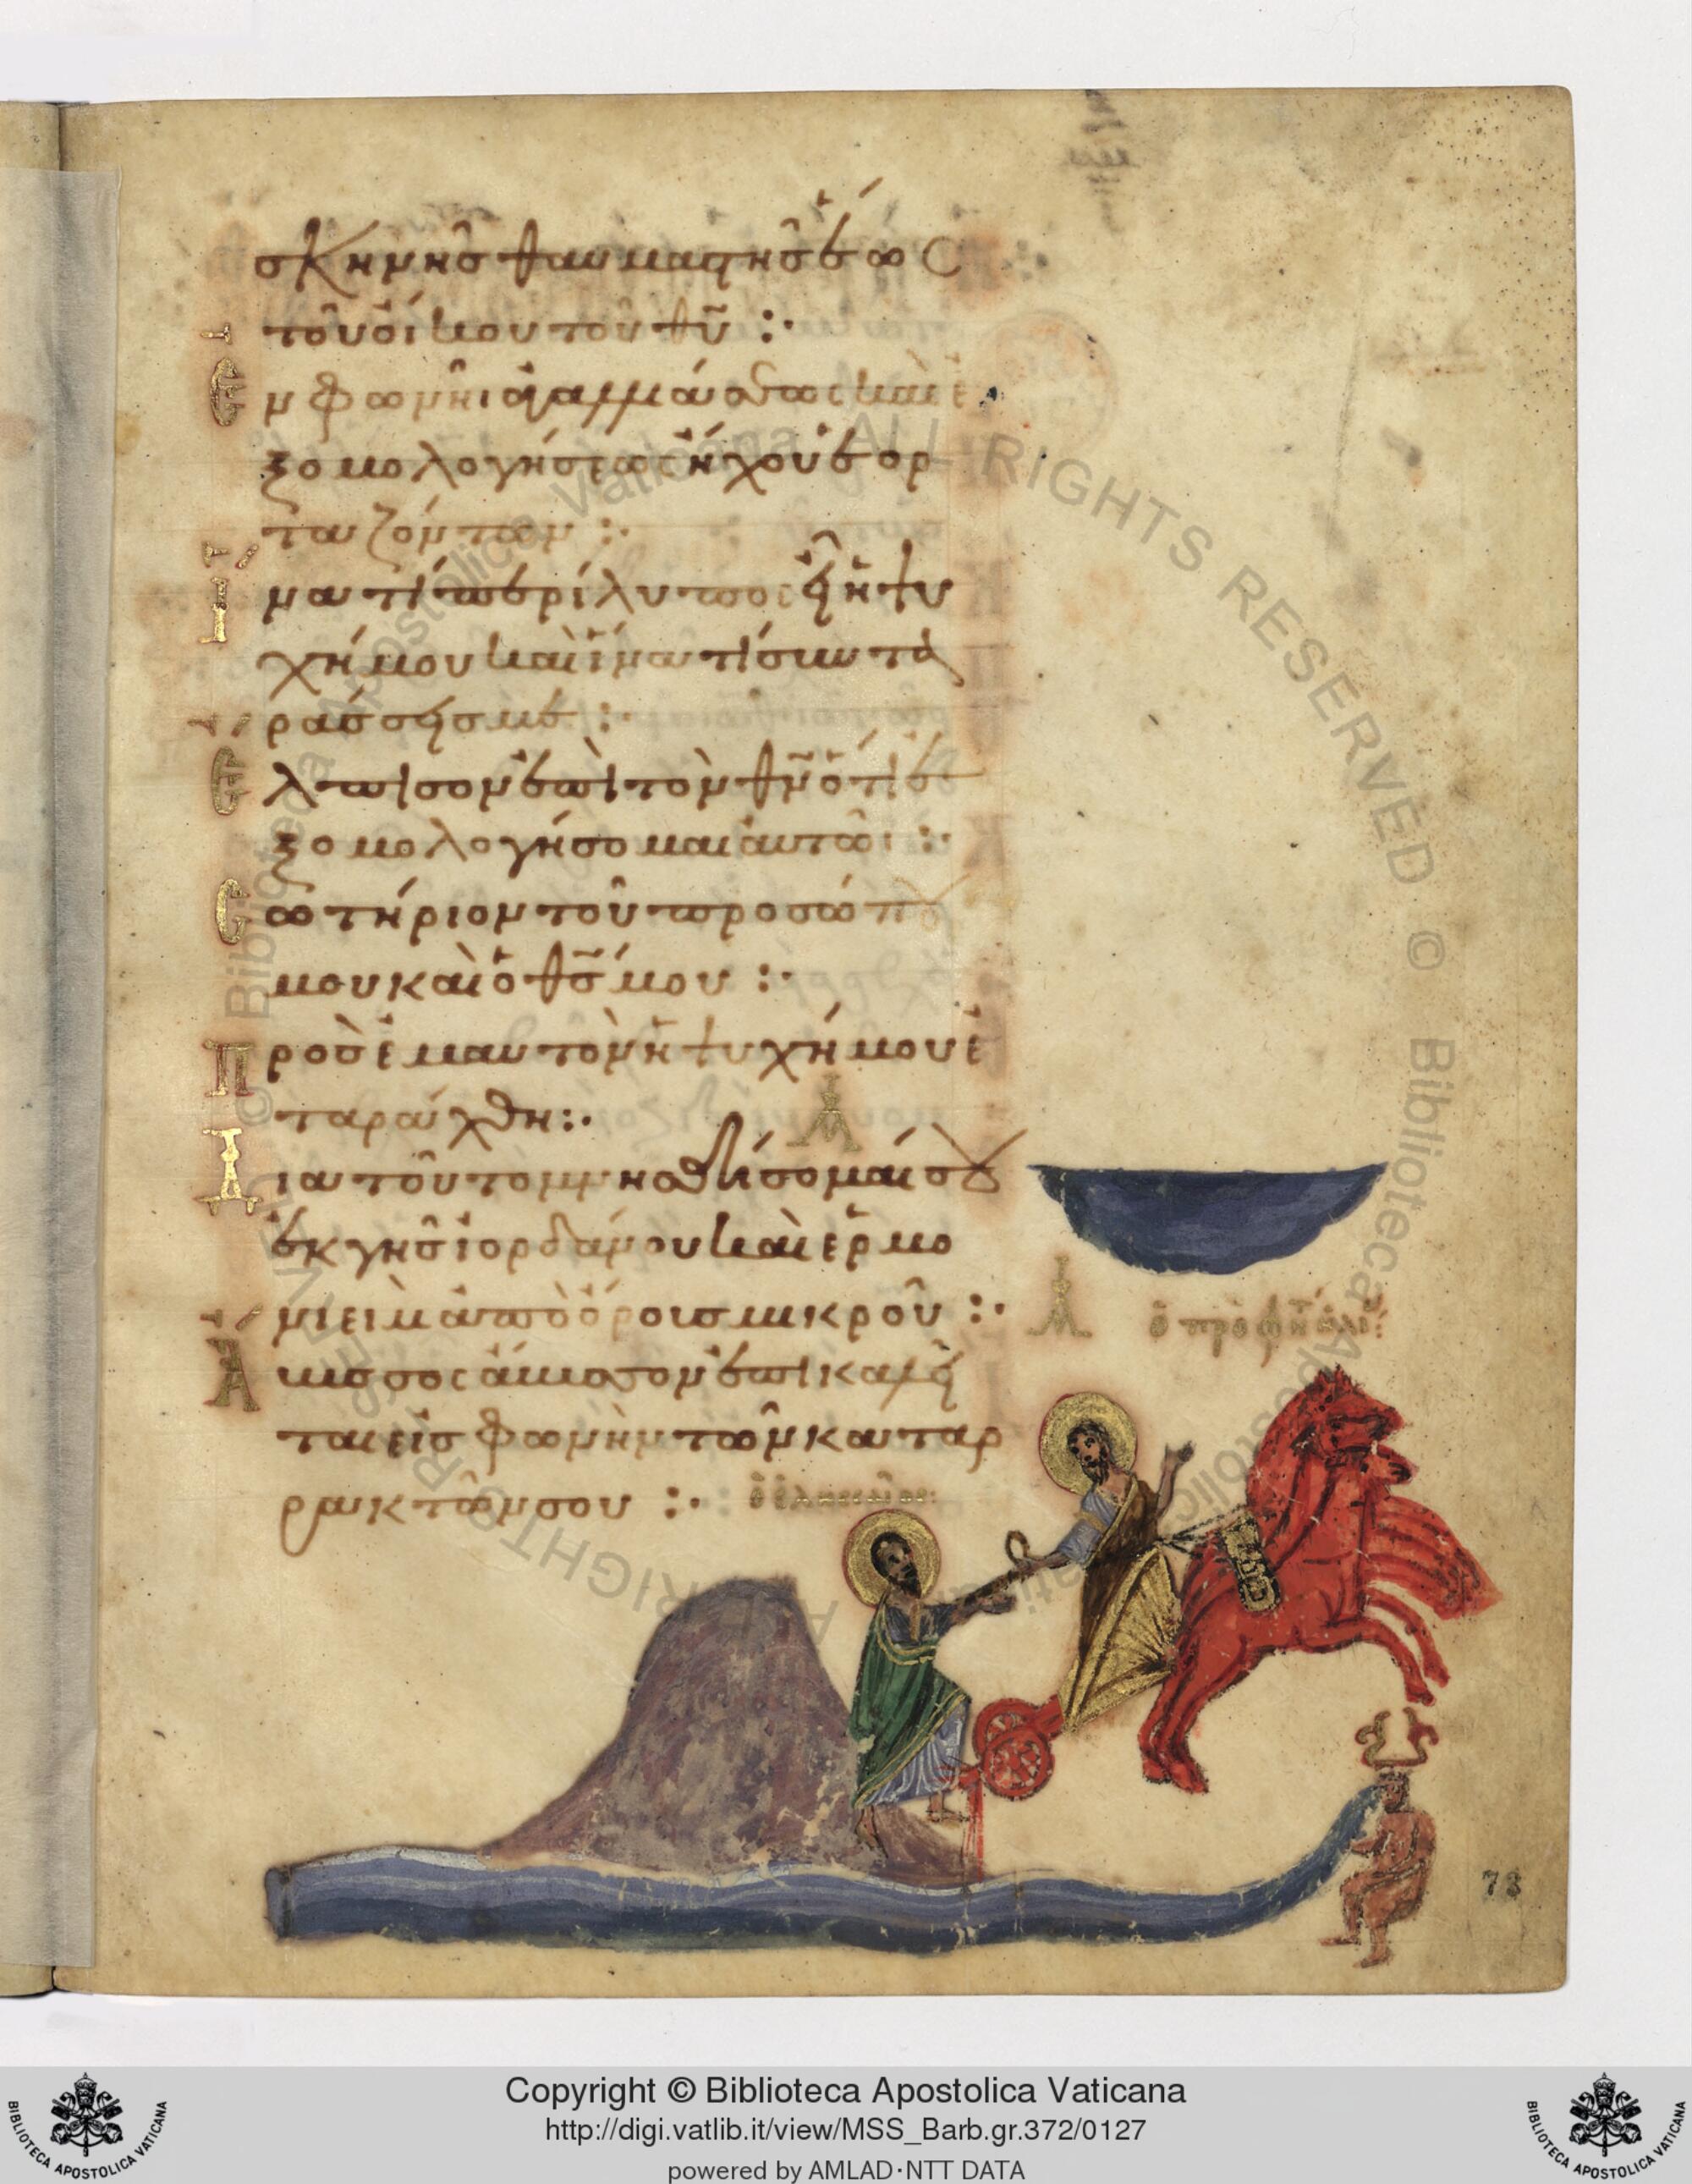 σκηνῆς θαυμαστῆς ἕως
τοῦ οἴκου τοῦ θῡ :·
Ἐν φωνῆι ἀγαλλιάσεως καὶ ἐ
ξομολογήσεως ἤχου ἑορ
ταζόντων :·
Ἵνα τί περίλυπος εἶ ἡ ψυ
χή μου καὶ ἵνα τί συντα
ράσσεις με :·
Ἔλπισον ἐπὶ τὸν θν̄ ὅτι ἐ
ξομολογήσομαι αὐτῶι :·
Σωτήριον τοῦ προσώπου
μου καὶ ὁ θς̄ μου :·
Πρὸς ἐμαυτὸν ἡ ψυχή μου ἐ
ταράχθη :·
Διὰ τοῦτο μνησθήσομαί σου
ἐκ γῆς ἰορδάνου καὶ ἑρμο
νιεὶμ ἀπὸ ὄρους μικροῦ :·
ὁ προφήτ ἠλί
Ἄβυσσος ἄβυσσον ἐπικαλεῖ
ται εἰς φωνὴν τῶν καταρ
ρακτῶν σου :·
ὁ ἐλισσαῖος
73
© Biblioteca Apostolica Vaticana ALL RIGHTS RESERVED © Biblioteca Apostolica Vaticana ALL RIGHTS RESERVED
BIBLIOTECA APOSTOLICA VATICANA
Copyright © Biblioteca Apostolica Vaticana
http://digi.vatlib.it/view/MSS_Barb.gr.372/0127
powered by AMLAD·NTT DATA
BIBLIOTECA APOSTOLICA VATICANA